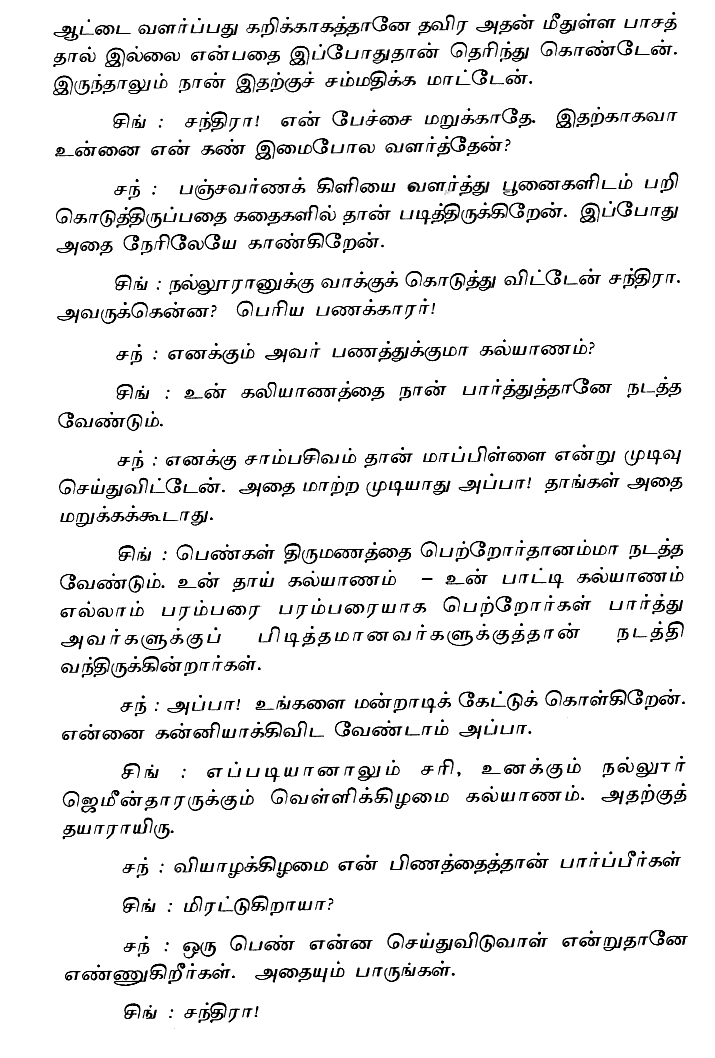 ஆட்டை வளர்ப்பது கறிக்காகத்தானே தவிர அதன் மீதுள்ள பாசத்
தால் இல்லை என்பதை இப்போதுதான் தெரிந்து கொண்டேன்.
இருந்தாலும் நான் இதற்குச் சம்மதிக்க மாட்டேன்.
சிங் : சந்திரா! என் பேச்சை மறுக்காதே. இதற்காகவா
உன்னை என் கண் இமைபோல வளர்த்தேன்?
சந் : பஞ்சவர்ணக் கிளியை வளர்த்து பூனைகளிடம் பறி
கொடுத்திருப்பதை கதைகளில் தான் படித்திருக்கிறேன். இப்போது
அதை நேரிலேயே காண்கிறேன்.
சிங் : நல்லூரானுக்கு வாக்குக் கொடுத்து விட்டேன் சந்திரா.
அவருக்கென்ன? பெரிய பணக்காரர்!
சந் : எனக்கும் அவர் பணத்துக்குமா கல்யாணம்?
சிங் : உன் கலியாணத்தை நான் பார்த்துத்தானே நடத்த
வேண்டும்.
சந் : எனக்கு சாம்பசிவம் தான் மாப்பிள்ளை என்று முடிவு
செய்துவிட்டேன். அதை மாற்ற முடியாது அப்பா! தாங்கள் அதை
மறுக்கக்கூடாது.
சிங் : பெண்கள் திருமணத்தை பெற்றோர்தானம்மா நடத்த
வேண்டும். உன் தாய் கல்யாணம் – உன் பாட்டி கல்யாணம்
எல்லாம் பரம்பரை பரம்பரையாக பெற்றோர்கள் பார்த்து
அவர்களுக்குப் பிடித்தமானவர்களுக்குத்தான் நடத்தி
வந்திருக்கின்றார்கள்.
சந் : அப்பா! உங்களை மன்றாடிக் கேட்டுக் கொள்கிறேன்.
என்னை கன்னியாக்கிவிட வேண்டாம் அப்பா.
சிங் : எப்படியானாலும் சரி, உனக்கும் நல்லூர்
ஜெமீன்தாரருக்கும் வெள்ளிக்கிழமை கல்யாணம். அதற்குத்
தயாராயிரு.
சந் : வியாழக்கிழமை என் பிணத்தைத்தான் பார்ப்பீர்கள்
சிங் : மிரட்டுகிறாயா?
சந் : ஒரு பெண் என்ன செய்துவிடுவாள் என்றுதானே
எண்ணுகிறீர்கள். அதையும் பாருங்கள்.
சிங் : சந்திரா!